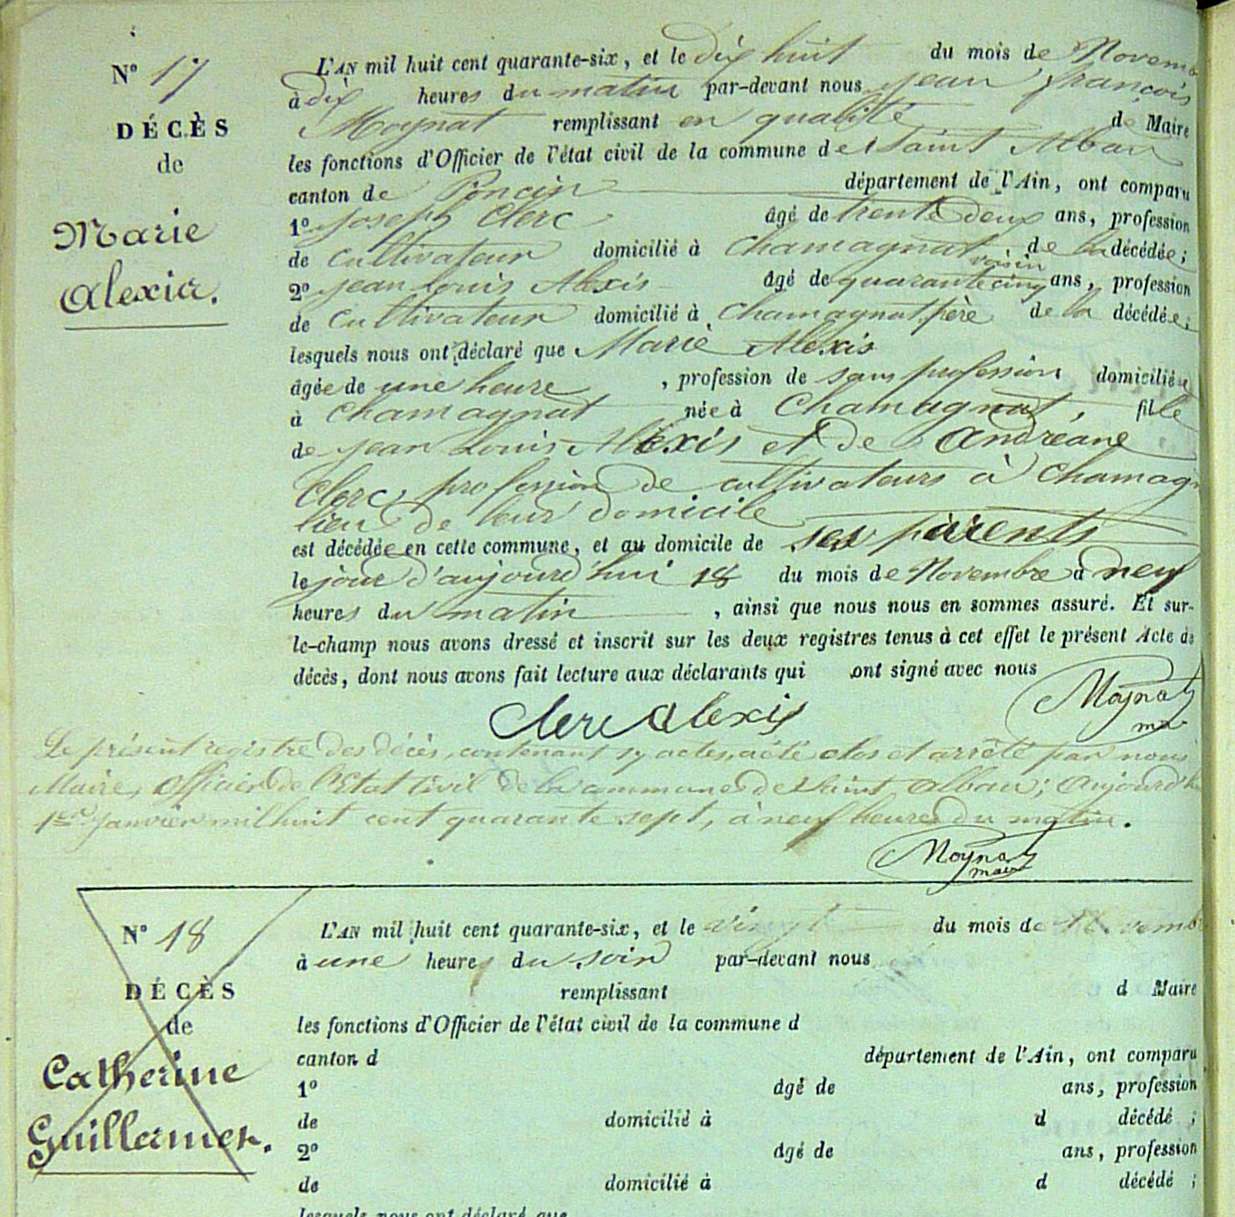 N° 17
DÉCÈS
de
Marie
Alexia.
L'AN mil huit cent quarante-six, et le dix huit du mois de Novemb
à dix heures du matin par-devant nous jean françois
Moynat remplissant en qualité de Maire
les fonctions d'Officier de l'état civil de la commune de Saint Alban
canton de Poncin département de l'Ain, ont comparu
1° joseph Clerc âgé de trente deux ans, profession
de cultivateur domicilié à Chamagnat, voisin de la décédée;
2° jean Louis Alexis âgé de quarante cinq ans, profession
de cultivateur domicilié à Chamagnat, père de la décédée;
lesquels nous ont déclaré que Marie Alexis
âgée de une heure, profession de sans profession domiciliée
à Chamagnat née à Chamagnat, fille
de jean Louis Alexis et de Andréane
Clerc, profession de cultivateurs à Chamag
lieu de leur domicile
est décédée en cette commune, et au domicile de ses parents
le jour d'aujourd'hui 18 du mois de Novembre à neuf
heures du matin, ainsi que nous nous en sommes assuré. Et sur-
le-champ nous avons dressé et inscrit sur les deux registres tenus à cet effet le présent Acte de
décès, dont nous avons fait lecture aux déclarants qui ont signé avec nous
Clerc Alexis Moynat
Le présent registre des décès, contenant 17 actes, a été clos et arrêté par nous
Maire, Officier de l'Etat Civil de la commune de Saint Alban; Aujourd'h
1er janvier mil huit cent quarante sept, à neuf heures du matin.
Moynat
maire
N° 18
DÉCÈS
de
Catherine
Guillermet.
L'AN mil huit cent quarante-six, et le vingt du mois de Novemb
à une heure du soir par-devant nous
remplissant d Maire
les fonctions d'Officier de l'état civil de la commune d
canton d département de l'Ain, ont comparu
1° âgé de ans, profession
de domicilié à d décédé ;
2° âgé de ans, profession
de domicilié à d décédé ;
lesquels nous ont déclaré que